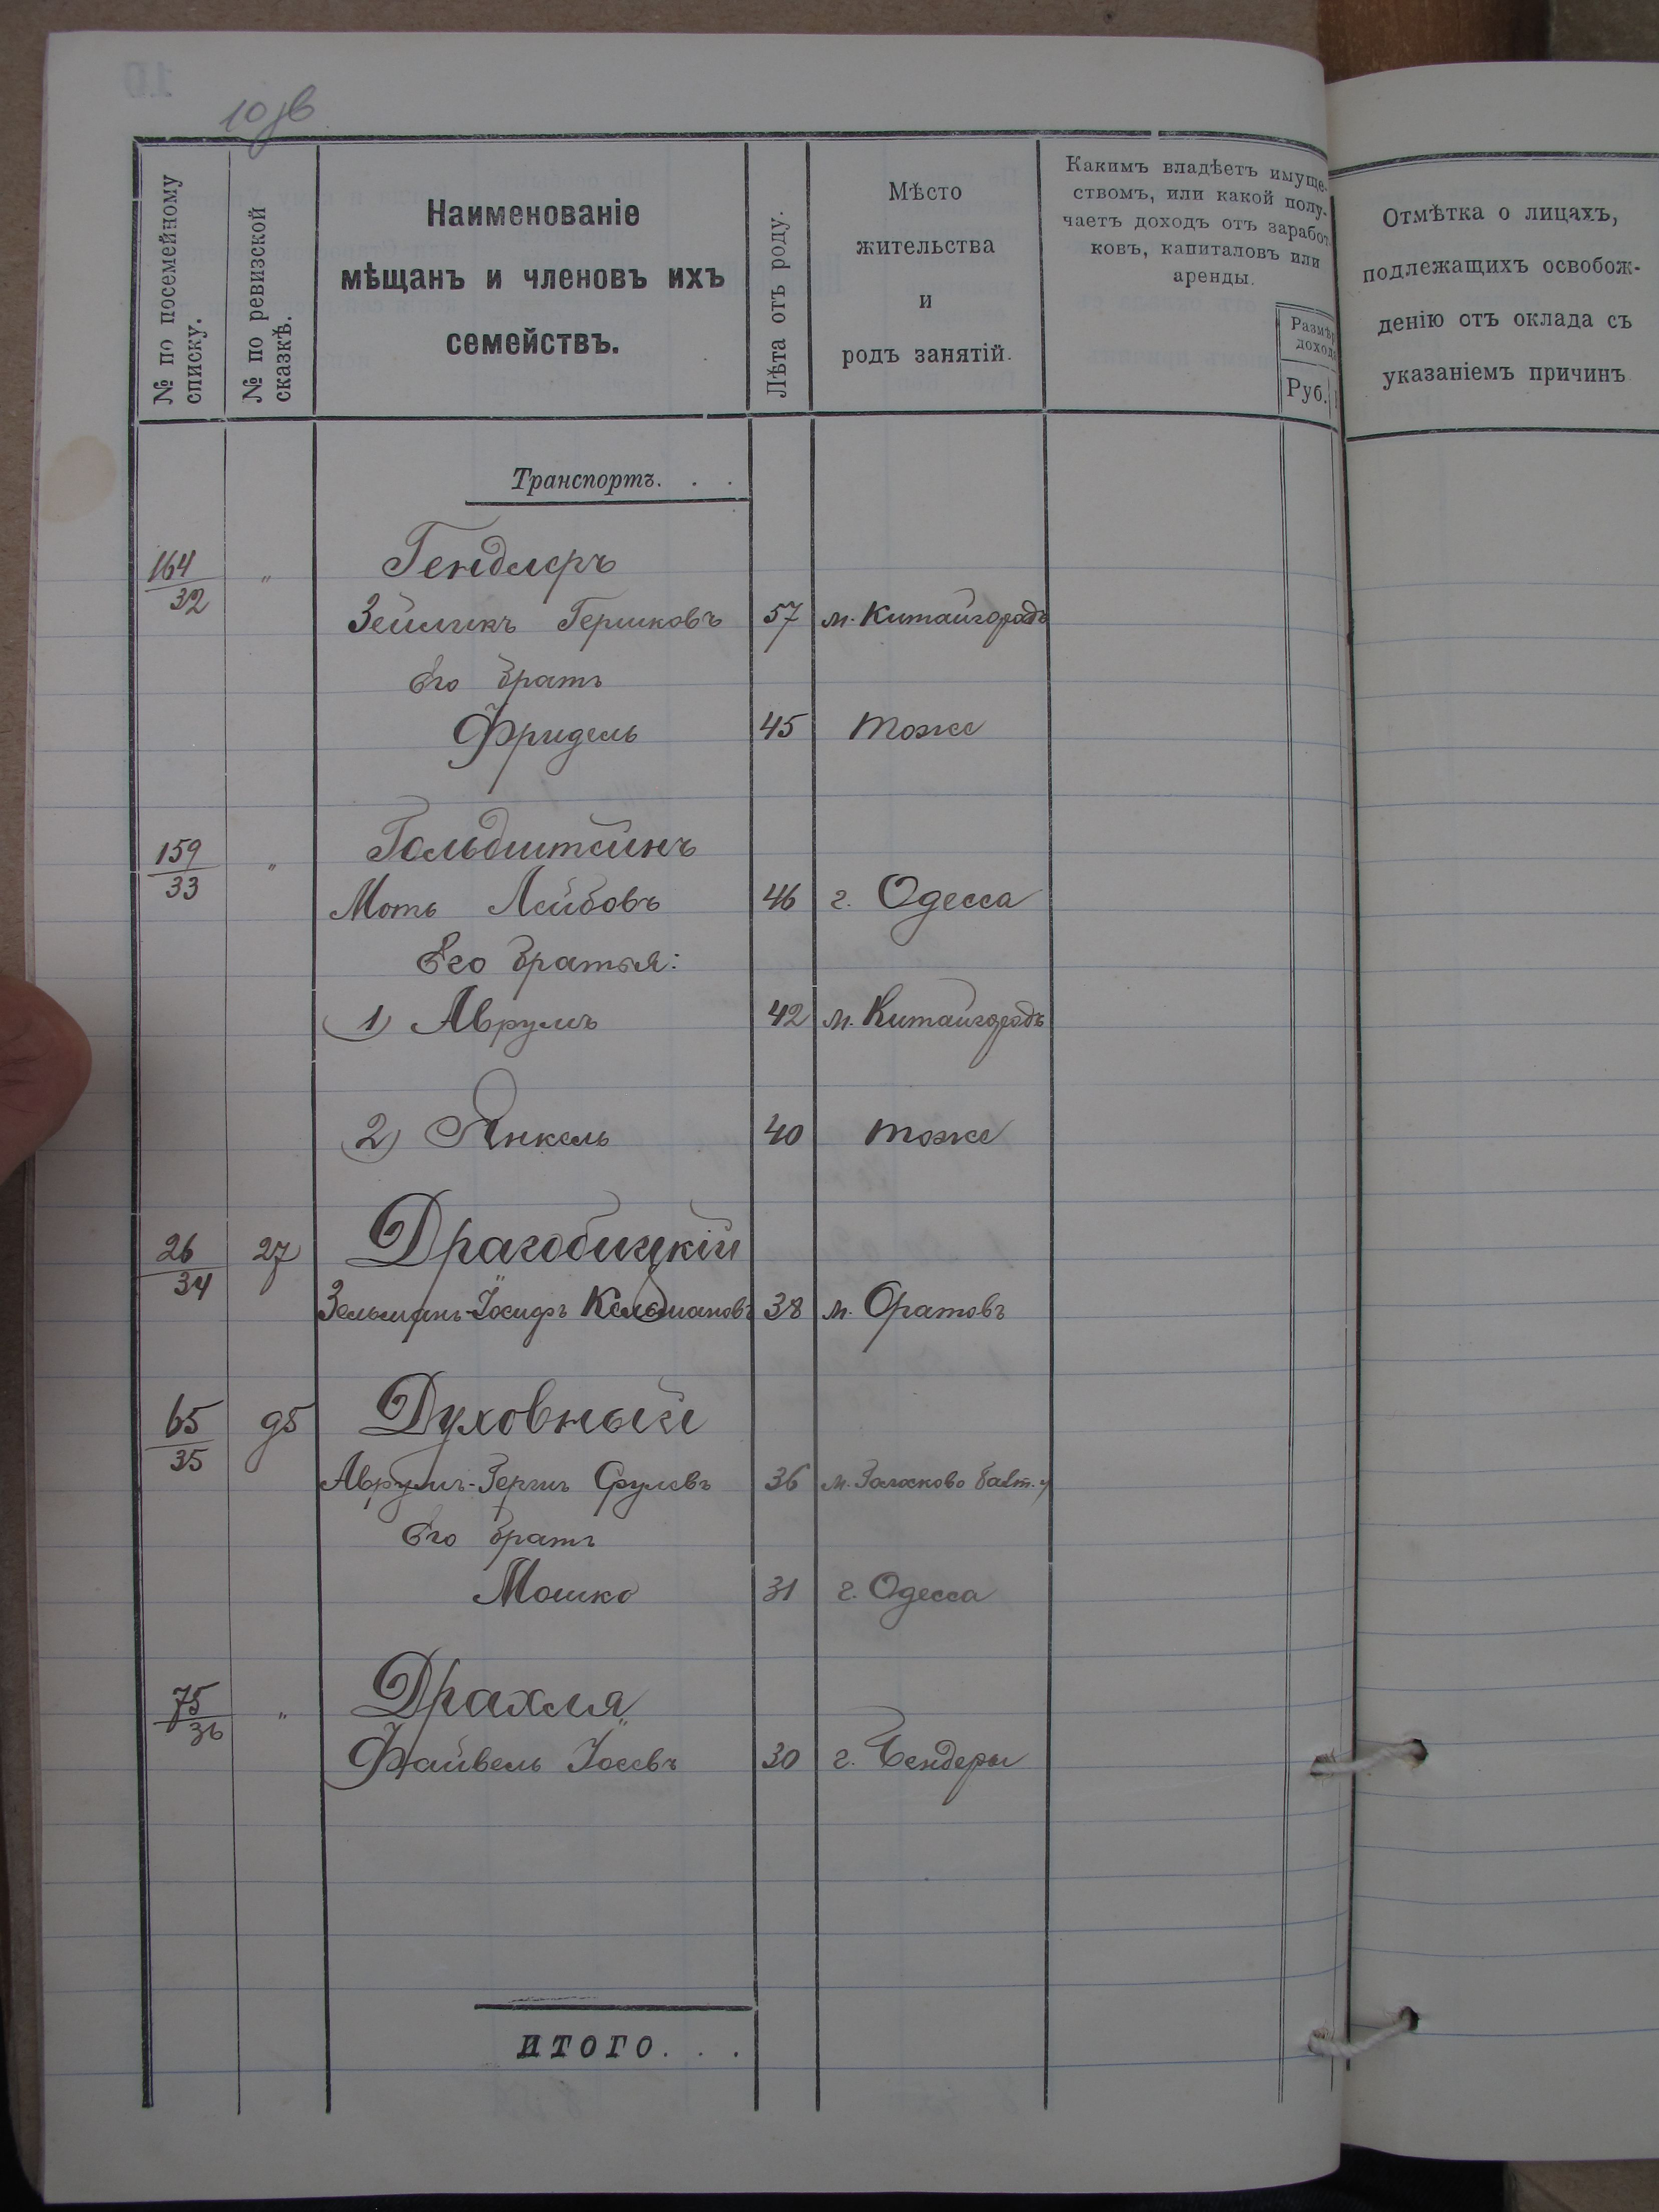 10 зв
№ по посемейному списку.
№ по ревизской сказкѣ.
Наименованіе
мѣщанъ и членовъ ихъ
семействъ.
Лѣта отъ роду.
Мѣсто
жительства
и
родъ занятій.
Какимъ владѣетъ имуще-
ствомъ, или какой полу-
чаетъ доходъ отъ заработ
ковъ, капиталовъ или
аренды.
Размѣр
дохода
Руб.
Отмѣтка о лицахъ,
подлежащихъ освобож-
денію отъ оклада съ
указаніемъ причинъ
Транспортъ. . .
164/32 " Гендлеръ
Зейликъ Гершковъ 57 м. Китайгородъ
Его братъ
Фридель 45 тоже
159/33 " Гольдштейнъ
Моть Лейбовъ 46 г. Одесса
Его братья:
1) Аврумъ 42 м. Китайгородъ
2) Янкель 40 тоже
26/34 27 Драгобицкій
Зельманъ-Іосифъ Кельмановъ 38 м. Оратовъ
65/35 95 Духовный
Аврумъ-Гершъ Срулевъ 36 м. Балт. у
Его братъ
Мошко 31 г. Одесса
75/36 " Драхля
Файвель Іосевъ 30 г. Бендеры
ИТОГО. . .